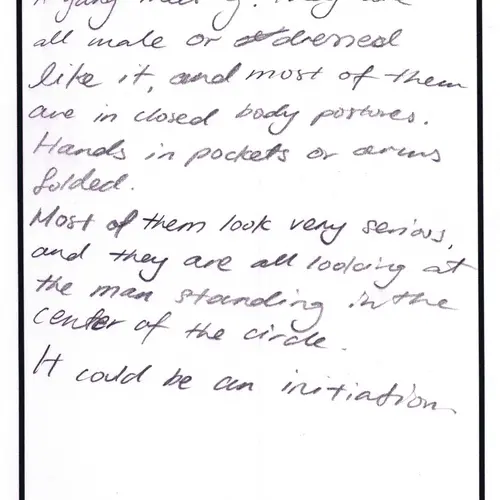 A gang meeting. They are
all male or dressed
like it, and most of them
are in closed body postures.
Hands in pockets or arms
folded.
Most of them look very serious,
and they are all looking at
the man standing in the
center of the circle.
It could be an initiation